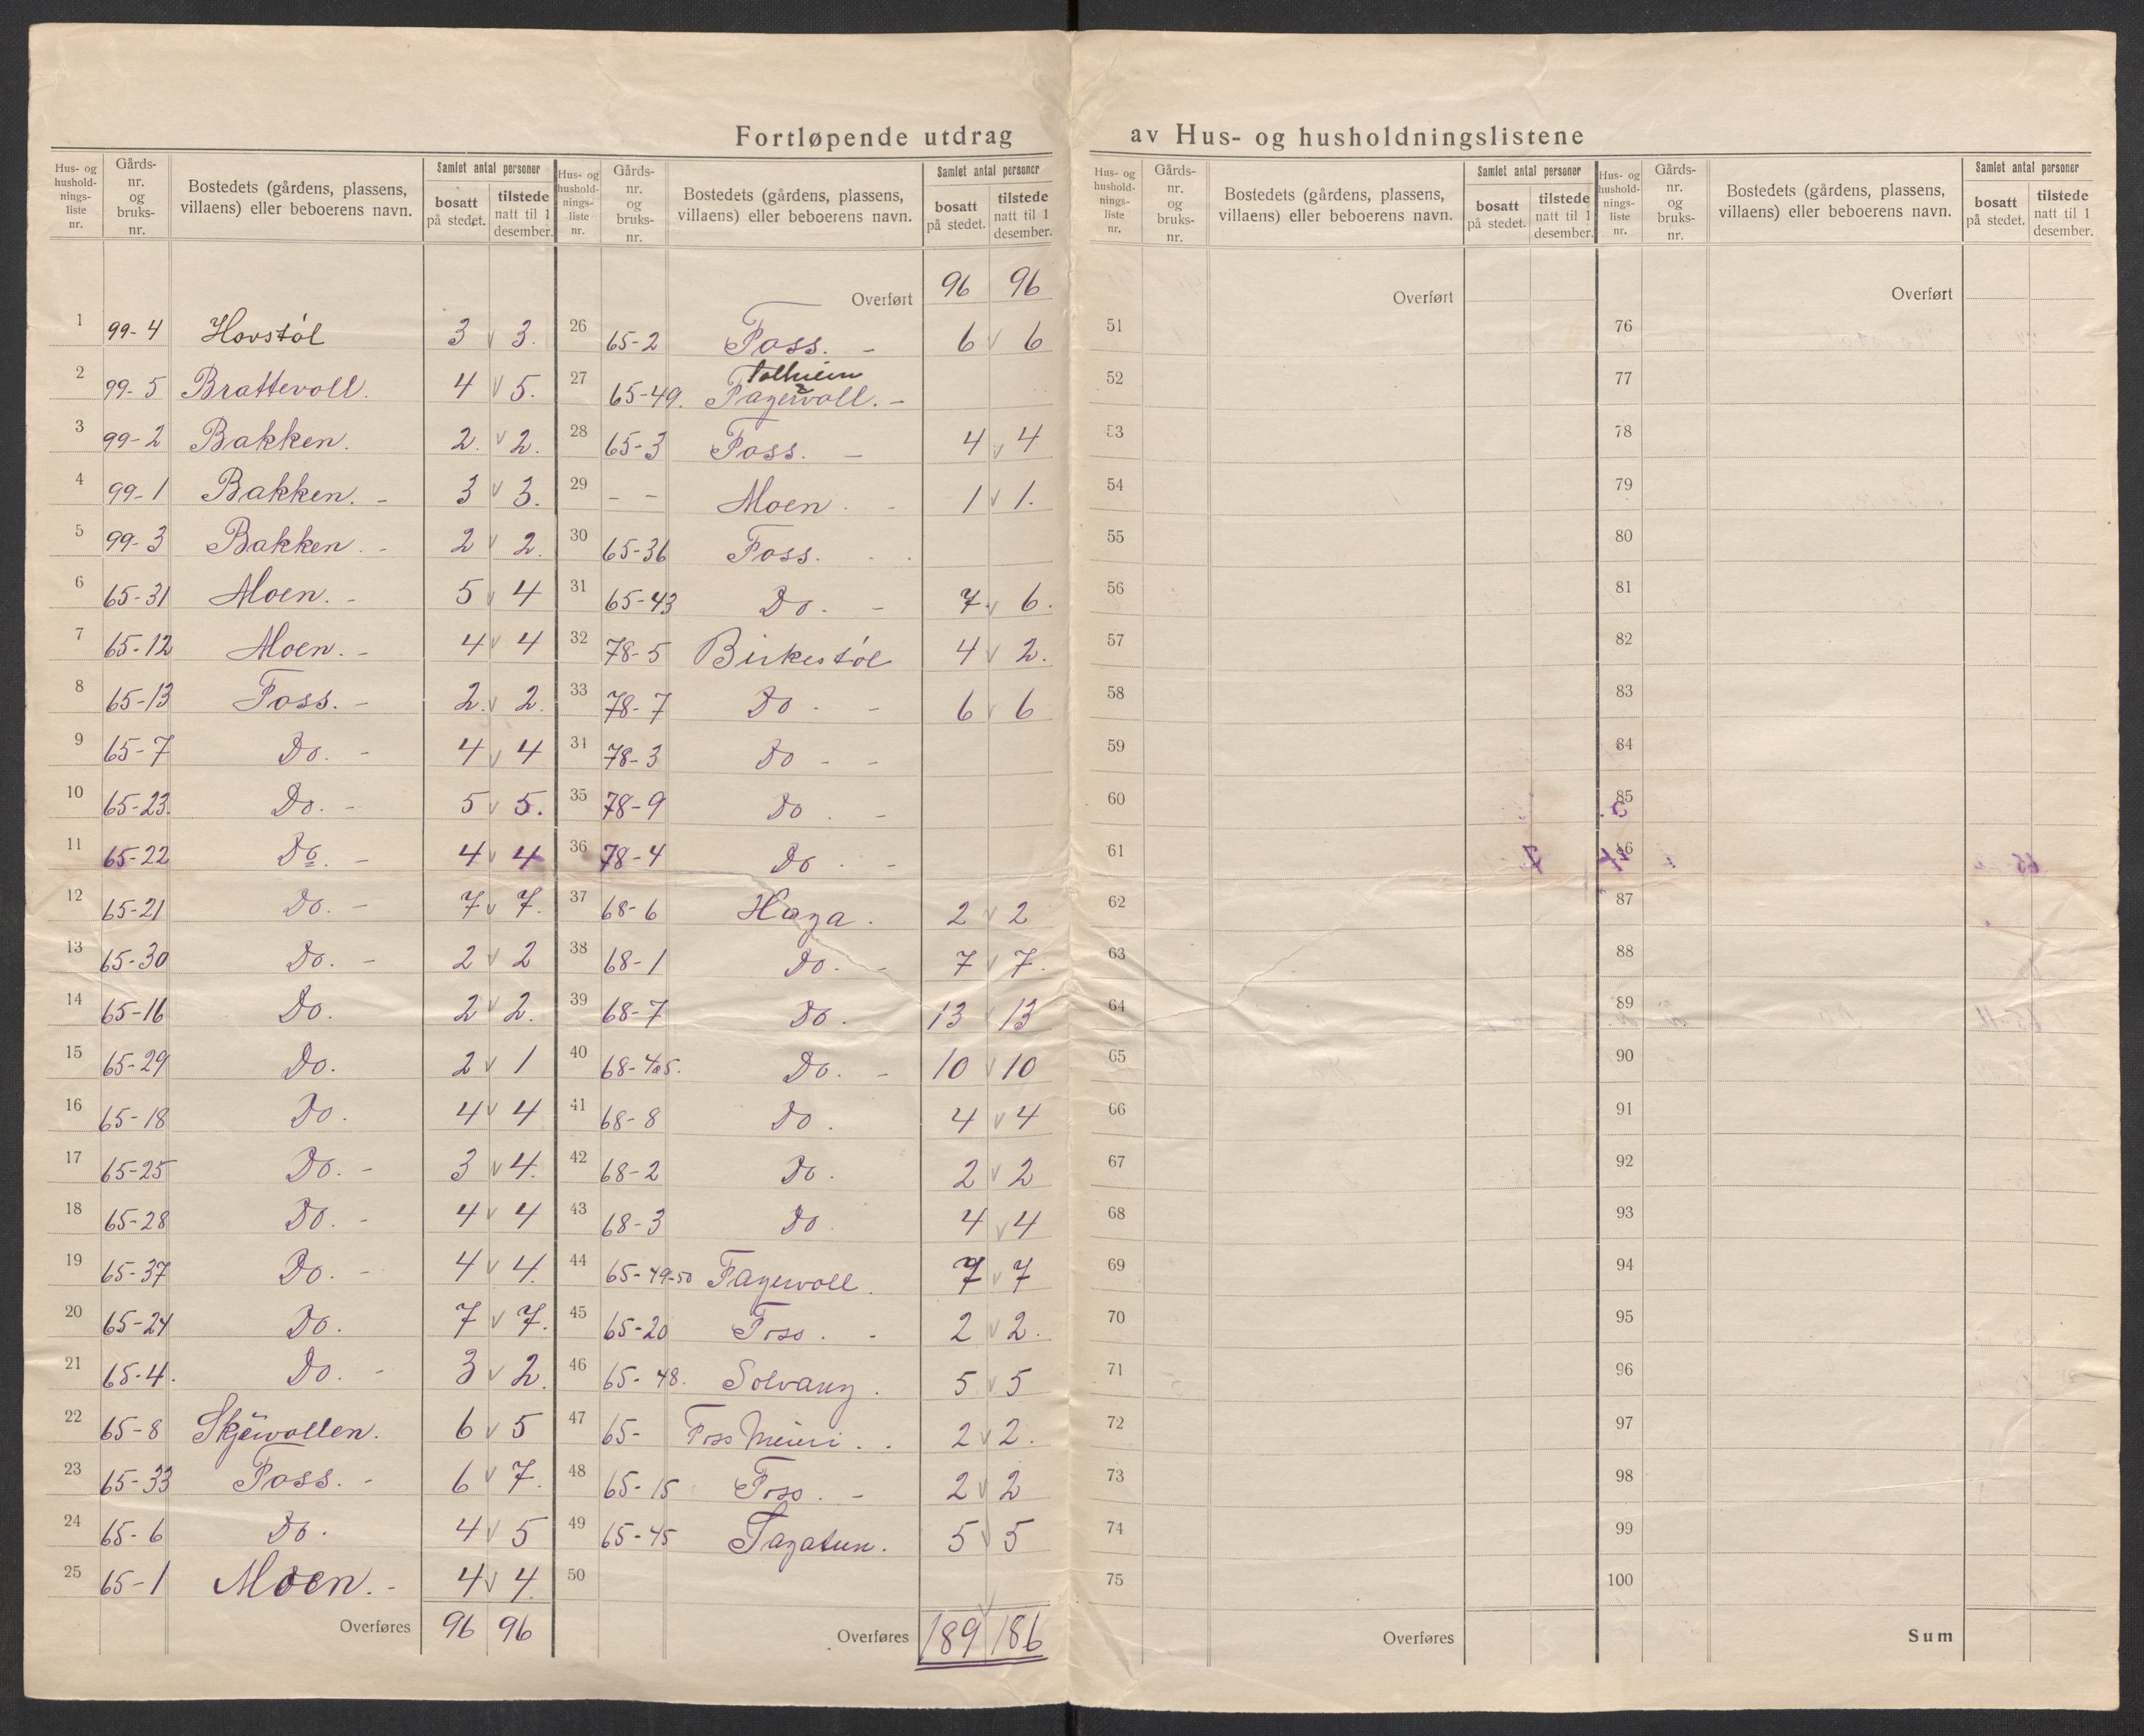 Fortløpende utdrag av Hus- og husholdningslistene
Hus- og hushold- nings- liste nr. | Gårds- nr. og bruks- nr. | Bostedets (gårdens, plassens, villaens) eller beboerens navn. | Samlet antal personer | bosatt på stedet. | tilstede natt til 1 desember.
1 99-4 Hovstøl 3 v 3.
2 99-5 Brattevoll. 4 v 5.
3 99-2 Bakken. 2. v 2.
4 99-1 Bakken. - 3 v 3.
5 99-3 Bakken. - 2 v 2.
6 65-31 Moen. - 5 v 4
7 65-12 Moen. - 4 v 4
8 65-13 Foss. - 2. v 2.
9 65-7 Do. - 4 v 4
10 65-23. Do. - 5 v 5.
11 65-22 Do. - 4 v 4
12 65-21 Do. - 7 v 7.
13 65-30 Do. - 2 v 2
14 65-16 Do. 2 v 2.
15 65-29 Do. 2 v 1
16 65-18 Do. 4 v 4
17 65-25 Do. - 3 v 4.
18 65-28 Do. - 4 v 4
19 65-37 Do. - 4 v 4.
20 65-24 Do. 7 v 7.
21 65-4. Do. - 3 v 2.
22 65-8 Skjevollen. 6 v 5
23 65-33 Foss. - 6 v 7.
24 65-6 Do. 4 v 5
25 65-1 Moen. - 4 v 4.
Overføres 96 96
Hus- og hushold- nings- liste nr. | Gårds- nr. og bruks- nr. | Bostedets (gårdens, plassens, villaens) eller beboerens navn. | Samlet antal personer | bosatt på stedet. | tilstede natt til 1 desember.
Overført 96 96
26 65-2 Foss. - 6 v 6
27 65-49. Fagervoll. -
28 65-3 Foss. - 4 v 4
29 - - Moen. - 1 v 1.
30 65-36 Foss. - .
31 65-43 Do. - 7 v 6.
32 78-5 Birkestøl 4 v 2.
33 78-7 Do. - 6 v 6
34 78-3 Do - -
35 78-9 Do . -
36 78-4 Do . -
37 68-6 Haga. 2 v 2
38 68-1 Do. - 7 v 7.
39 68-7 Do. 13 v 13
40 68-4o5. Do. - 10 v 10
41 68-8 Do. 4 v 4
42 68-2 Do. 2 v 2
43 68-3 Do. 4 v 4
44 65-49-50 Fagervoll. 7 v 7
45 65-20 Foss. - 2 v 2.
46 65-48. Solvang. 5 v 5
47 65- Foss Meieri. . 2 v 2.
48 65-15 Foss. - 2 v 2
49 65-45 Fagatun. 5 v 5
50
Overføres 189 186
Hus- og hushold- nings- liste nr. | Gårds- nr. og bruks- nr. | Bostedets (gårdens, plassens, villaens) eller beboerens navn. | Samlet antal personer | bosatt på stedet. | tilstede natt til 1 desember.
Overført
51
52
53
54
55
56
57
58
59
60
61
62
63
64
65
66
67
68
69
70
71
72
73
74
75
Overføres
Hus- og hushold- nings- liste nr. | Gårds- nr. og bruks- nr. | Bostedets (gårdens, plassens, villaens) eller beboerens navn. | Samlet antal personer | bosatt på stedet. | tilstede natt til 1 desember.
Overført
76
77
78
79
80
81
82
83
84
85
86
87
88
89
90
91
92
93
94
95
96
97
98
99
100
Sum